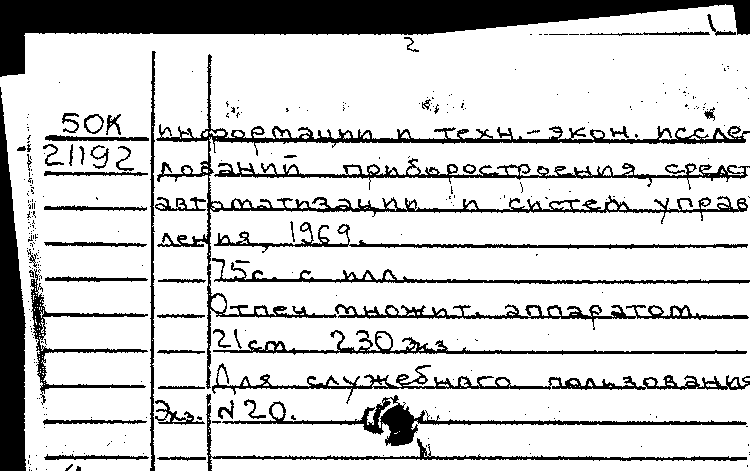 2
50К информации и техн.-экон. иссле-
21192 дований приборостроения, средст
автоматизации и систем управ
ления, 1969.
75с. с илл.
Отпеч. множит. аппаратом.
21 см. 230 экз.
Для служебного пользования
Экз. №20.